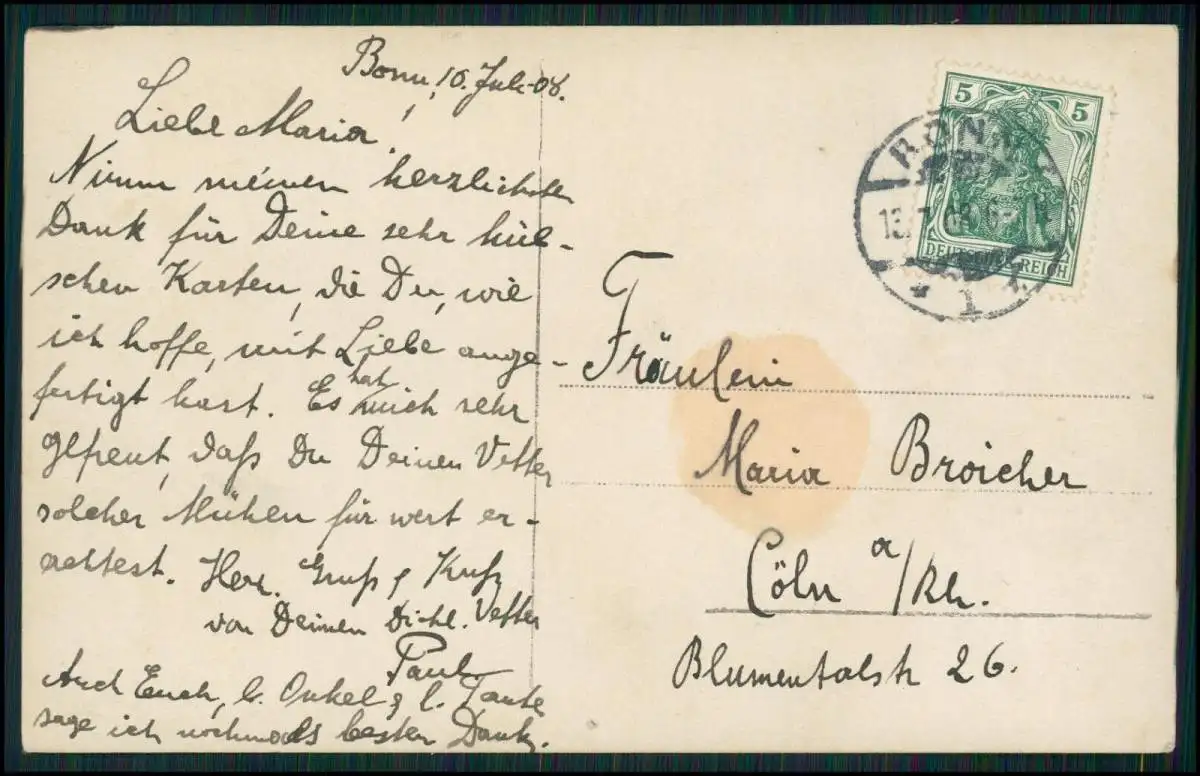 Bonn, 10. Juli 08.
Liebe Maria!
Nimm meinen herzlichsten
Dank für Deine sehr hüb-
schen Karten, die Du, wie
ich hoffe, mit Liebe ange-
fertigt hast. Es hat mich sehr
gefreut, daß Du Deinen Vetter
solcher Mühen für wert er-
achtest. Herz. Gruß & Kuß
von Deinem Dichl. Vetter
Paul
Auch Euch, l. Onkel & l. Tante
sage ich nochmals besten Dank.
5 5
DEUTSCHES REICH
BONN
1
Fräulein
Maria Broicher
Cöln a/Rh.
Blumentalstr 26.